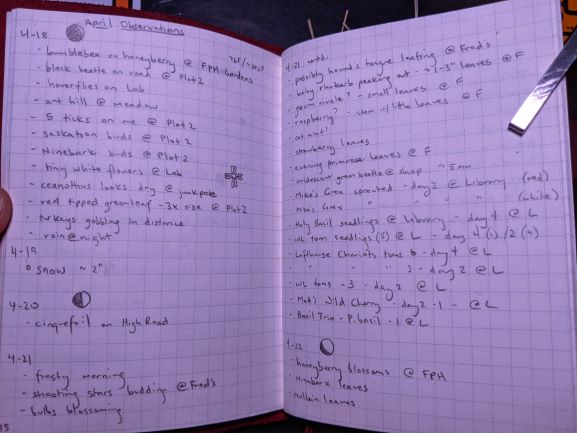 April Observations
4-18
- bumblebee on honeyberry @ FPH Gardens
- black beetle on road @ Plot 2
- hoverflies on Lab
- ant hill @ meadow
- 5 ticks on me @ Plot 2
- saskatoon buds @ Plot 2
- Ninebark buds @ Plot 2
- tiny white flowers @ Lab
- ceanothus looks dry @ junkpole
- red tipped greenleaf - 3x size @ Plot 2
- turkeys gobbling in distance
- rain @ night
4-19
° snow ~ 2"
4-20
- cinquefoil on High Road
4-21
- frosty morning
- shooting stars budding @ Fred's
- bulbs blossoming
15
4-21 contd.
- possibly hound's tongue leafing @ Fred's
- baby rhubarb peeking out - ~1-3" leaves @ F
- geum rivale? - small leaves @ F
- raspberry? - stem w/ little leaves @ F
- strawberry leaves
- evening primrose leaves @ F
- iridescent green beetle @ shop ~ 5mm
- Mike's Grex sprouted - day 2 @ Library (red)
- Mike's Grex " " " " (white)
- Holy Basil seedlings @ Library - day 4 @ L
- WL tom seedlings (5) @ L - day 4 (1) / 2 (4)
- Lofthouse Chariots toms 6 - day 4 @ L
- " " " 3 - day 2 @ L
- WL toms - 3 - day 2 @ L
- Mat's Wild Cherry - day 2 - 1 - @ L
- Basil Trio - P. basil - 1 @ L
4-22
- honeyberry blossoms @ FPH
- Ninebark leaves
- Mullein leaves